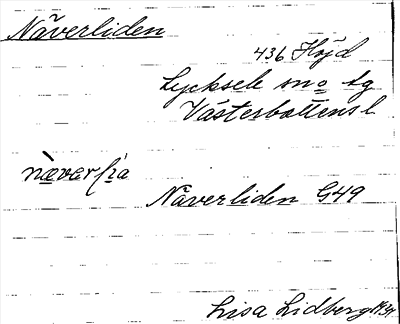 Näverliden
436 Höjd
Lycksele sn o tg
Västerbottens l
Näverliden G49
Lisa Lidberg 1934